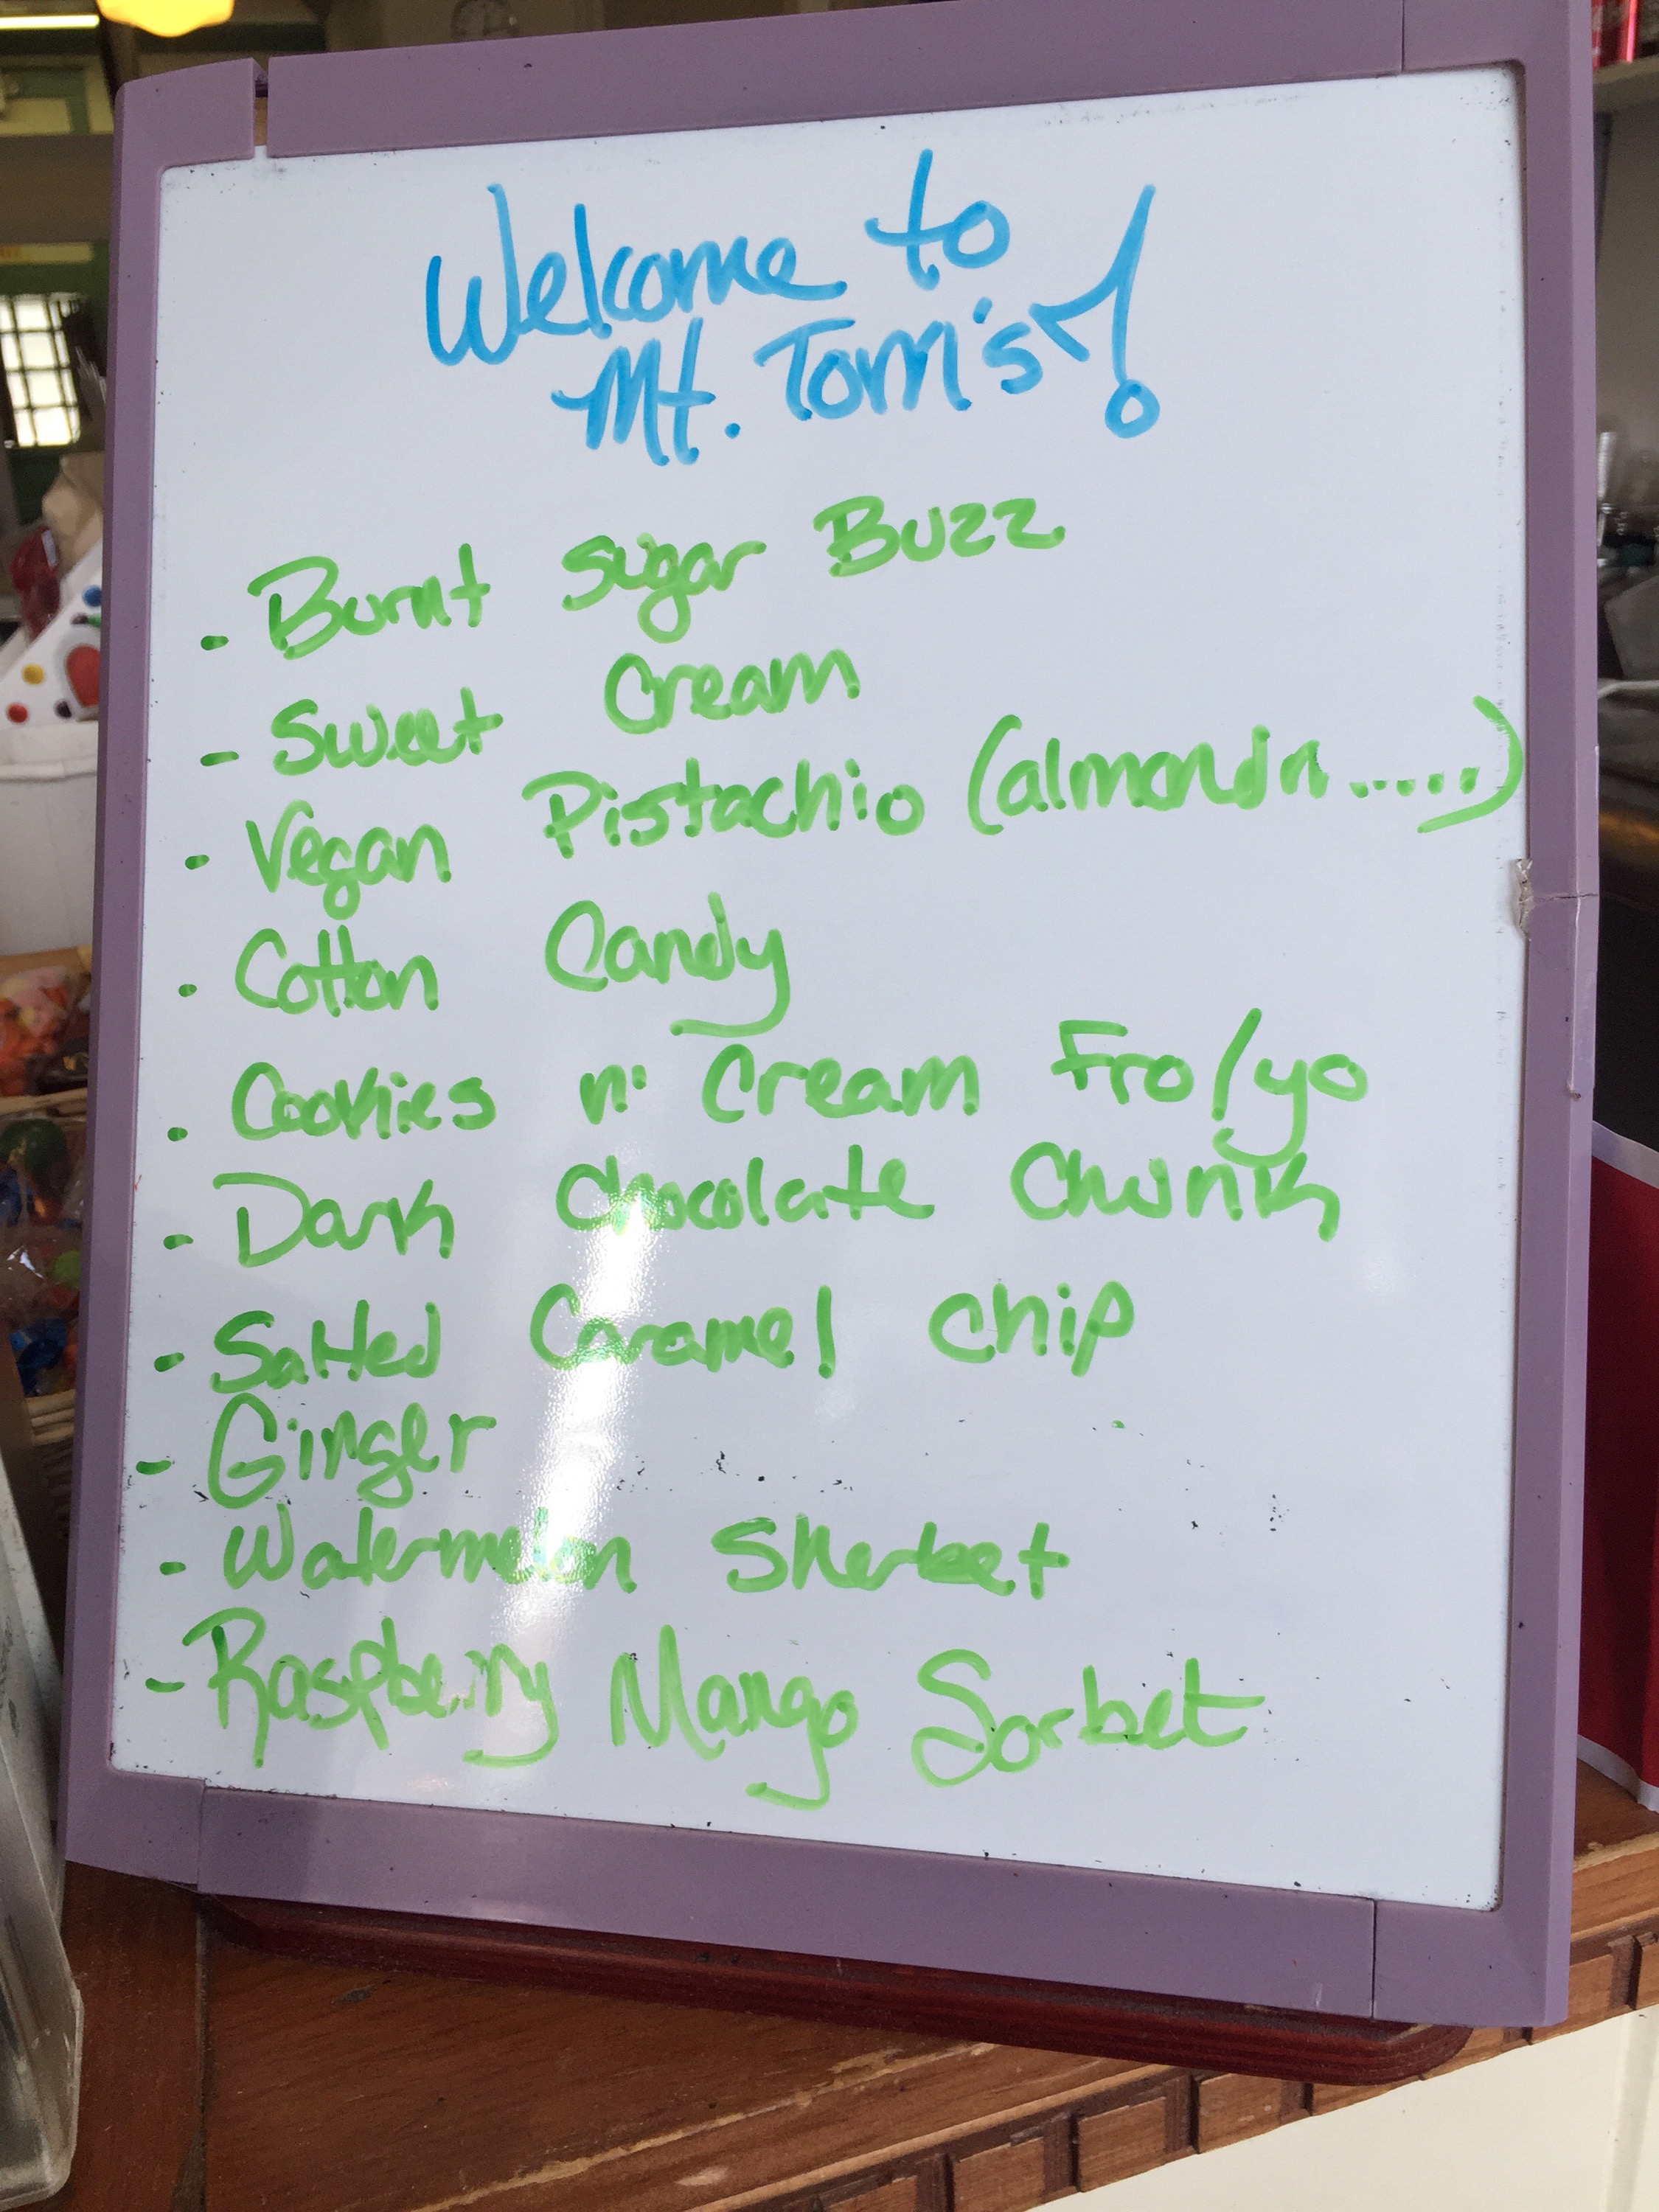 Welcome to
Mt. Tom's!
- Burnt Sugar Buzz
- Sweet Cream
- Vegan Pistachio (almondn.....)
- Cotton Candy
- Cookies n' Cream Fro/yo
- Dark Chocolate Chunk
- Salted Caramel Chip
- Ginger
- Watermelon Sherbet
- Raspberry Mango Sorbet